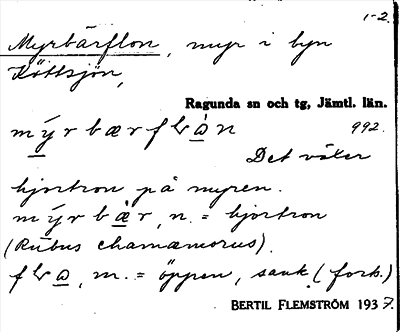 1-2.
Myrbärflon, myr i byn
Köttsjön,
Ragunda sn och tg, Jämtl. län.
mýrbærflo̊n 992.
Det växer
hjortron på myren.
mýrbæ̀r, n. = hjortron
(Rubus chamæmorus).
flo̊, m. = öppen, sank (fork.)
BERTIL FLEMSTRÖM 1937.